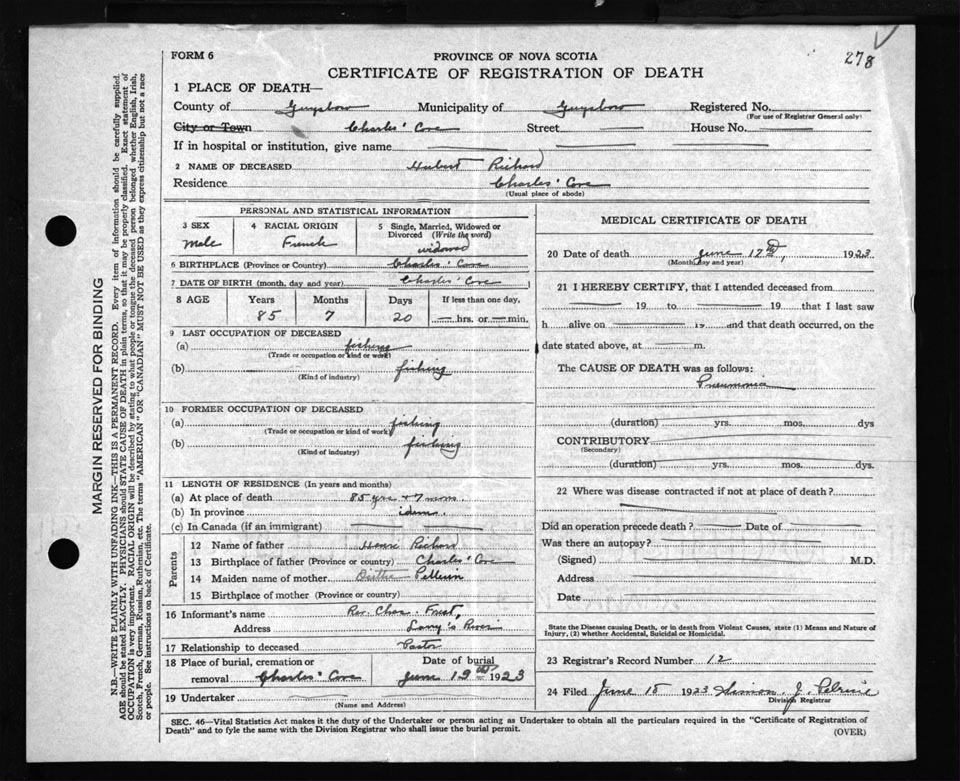 278
FORM 6
PROVINCE OF NOVA SCOTIA
CERTIFICATE OF REGISTRATION OF DEATH
1 PLACE OF DEATH—
County of Guysboro Municipality of Guysboro Registered No.
(For use of Registrar General only)
City or Town Charles' Cove Street — House No. —
If in hospital or institution, give name
2 NAME OF DECEASED Hubert Richard
Residence Charles' Cove
(Usual place of abode)
PERSONAL AND STATISTICAL INFORMATION
3 SEX
Male
4 RACIAL ORIGIN
French
5 Single, Married, Widowed or
Divorced (Write the word)
widowed
6 BIRTHPLACE (Province or Country) Charles' Cove
7 DATE OF BIRTH (month, day and year) Charles' Cove
8 AGE Years Months Days If less than one day,
85 7 20 — hrs. or — min.
9 LAST OCCUPATION OF DECEASED
(a) fishing
(Trade or occupation or kind or work)
(b) fishing
(Kind of industry)
10 FORMER OCCUPATION OF DECEASED
(a) fishing
(Trade or occupation or kind of work)
(b) fishing
(Kind of industry)
11 LENGTH OF RESIDENCE (In years and months)
(a) At place of death 85 yrs + 7 mons.
(b) In province idem.
(c) In Canada (if an immigrant)
Parents
12 Name of father Richard
13 Birthplace of father (Province or country) Charles' Cove
14 Maiden name of mother Pellerin
15 Birthplace of mother (Province or country)
16 Informant's name Rev. Chas. Forest,
Address Larry's River
17 Relationship to deceased Pastor
18 Place of burial, cremation or
removal Charles' Cove
Date of burial
June 19th 1923
19 Undertaker
(Name and Address)
MEDICAL CERTIFICATE OF DEATH
20 Date of death June 17th, 1923
(Month, day and year)
21 I HEREBY CERTIFY, that I attended deceased from
19 to 19 that I last saw
h alive on 19 and that death occurred, on the
date stated above, at — m.
The CAUSE OF DEATH was as follows:
Pneumonia
(duration) yrs. mos. dys
CONTRIBUTORY
(Secondary)
(duration) yrs. mos. dys.
22 Where was disease contracted if not at place of death?
Did an operation precede death? — Date of
Was there an autopsy?
(Signed) M.D.
Address
Date
State the Disease causing Death, or in death from Violent Causes, state (1) Means and Nature of
Injury, (2) whether Accidental, Suicidal or Homicidal.
23 Registrar's Record Number 12
24 Filed June 18 1923 Simon J. Pelrine
Division Registrar
SEC. 46—Vital Statistics Act makes it the duty of the Undertaker or person acting as Undertaker to obtain all the particulars required in the "Certificate of Registration of
Death" and to fyle the same with the Division Registrar who shall issue the burial permit.
(OVER)
MARGIN RESERVED FOR BINDING
N.B.—WRITE PLAINLY WITH UNFADING INK—THIS IS A PERMANENT RECORD. Every item of information should be carefully supplied.
AGE should be stated EXACTLY. PHYSICIANS should STATE CAUSE OF DEATH in plain terms, so that it may be properly classified. Exact statement of
OCCUPATION is very important. RACIAL ORIGIN will be described by stating to what people or tongue the deceased person belonged whether English, Irish,
Scotch, French, German, Russian, Ruthenian, etc. The terms "AMERICAN" OR "CANADIAN" MUST NOT BE USED as they express citizenship but not a race
or people. See instructions on back of Certificate.